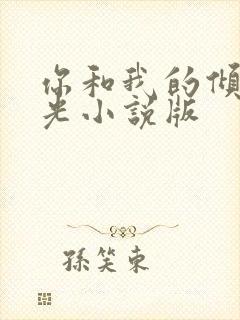 你和我的倾
光小说版
孙笑东